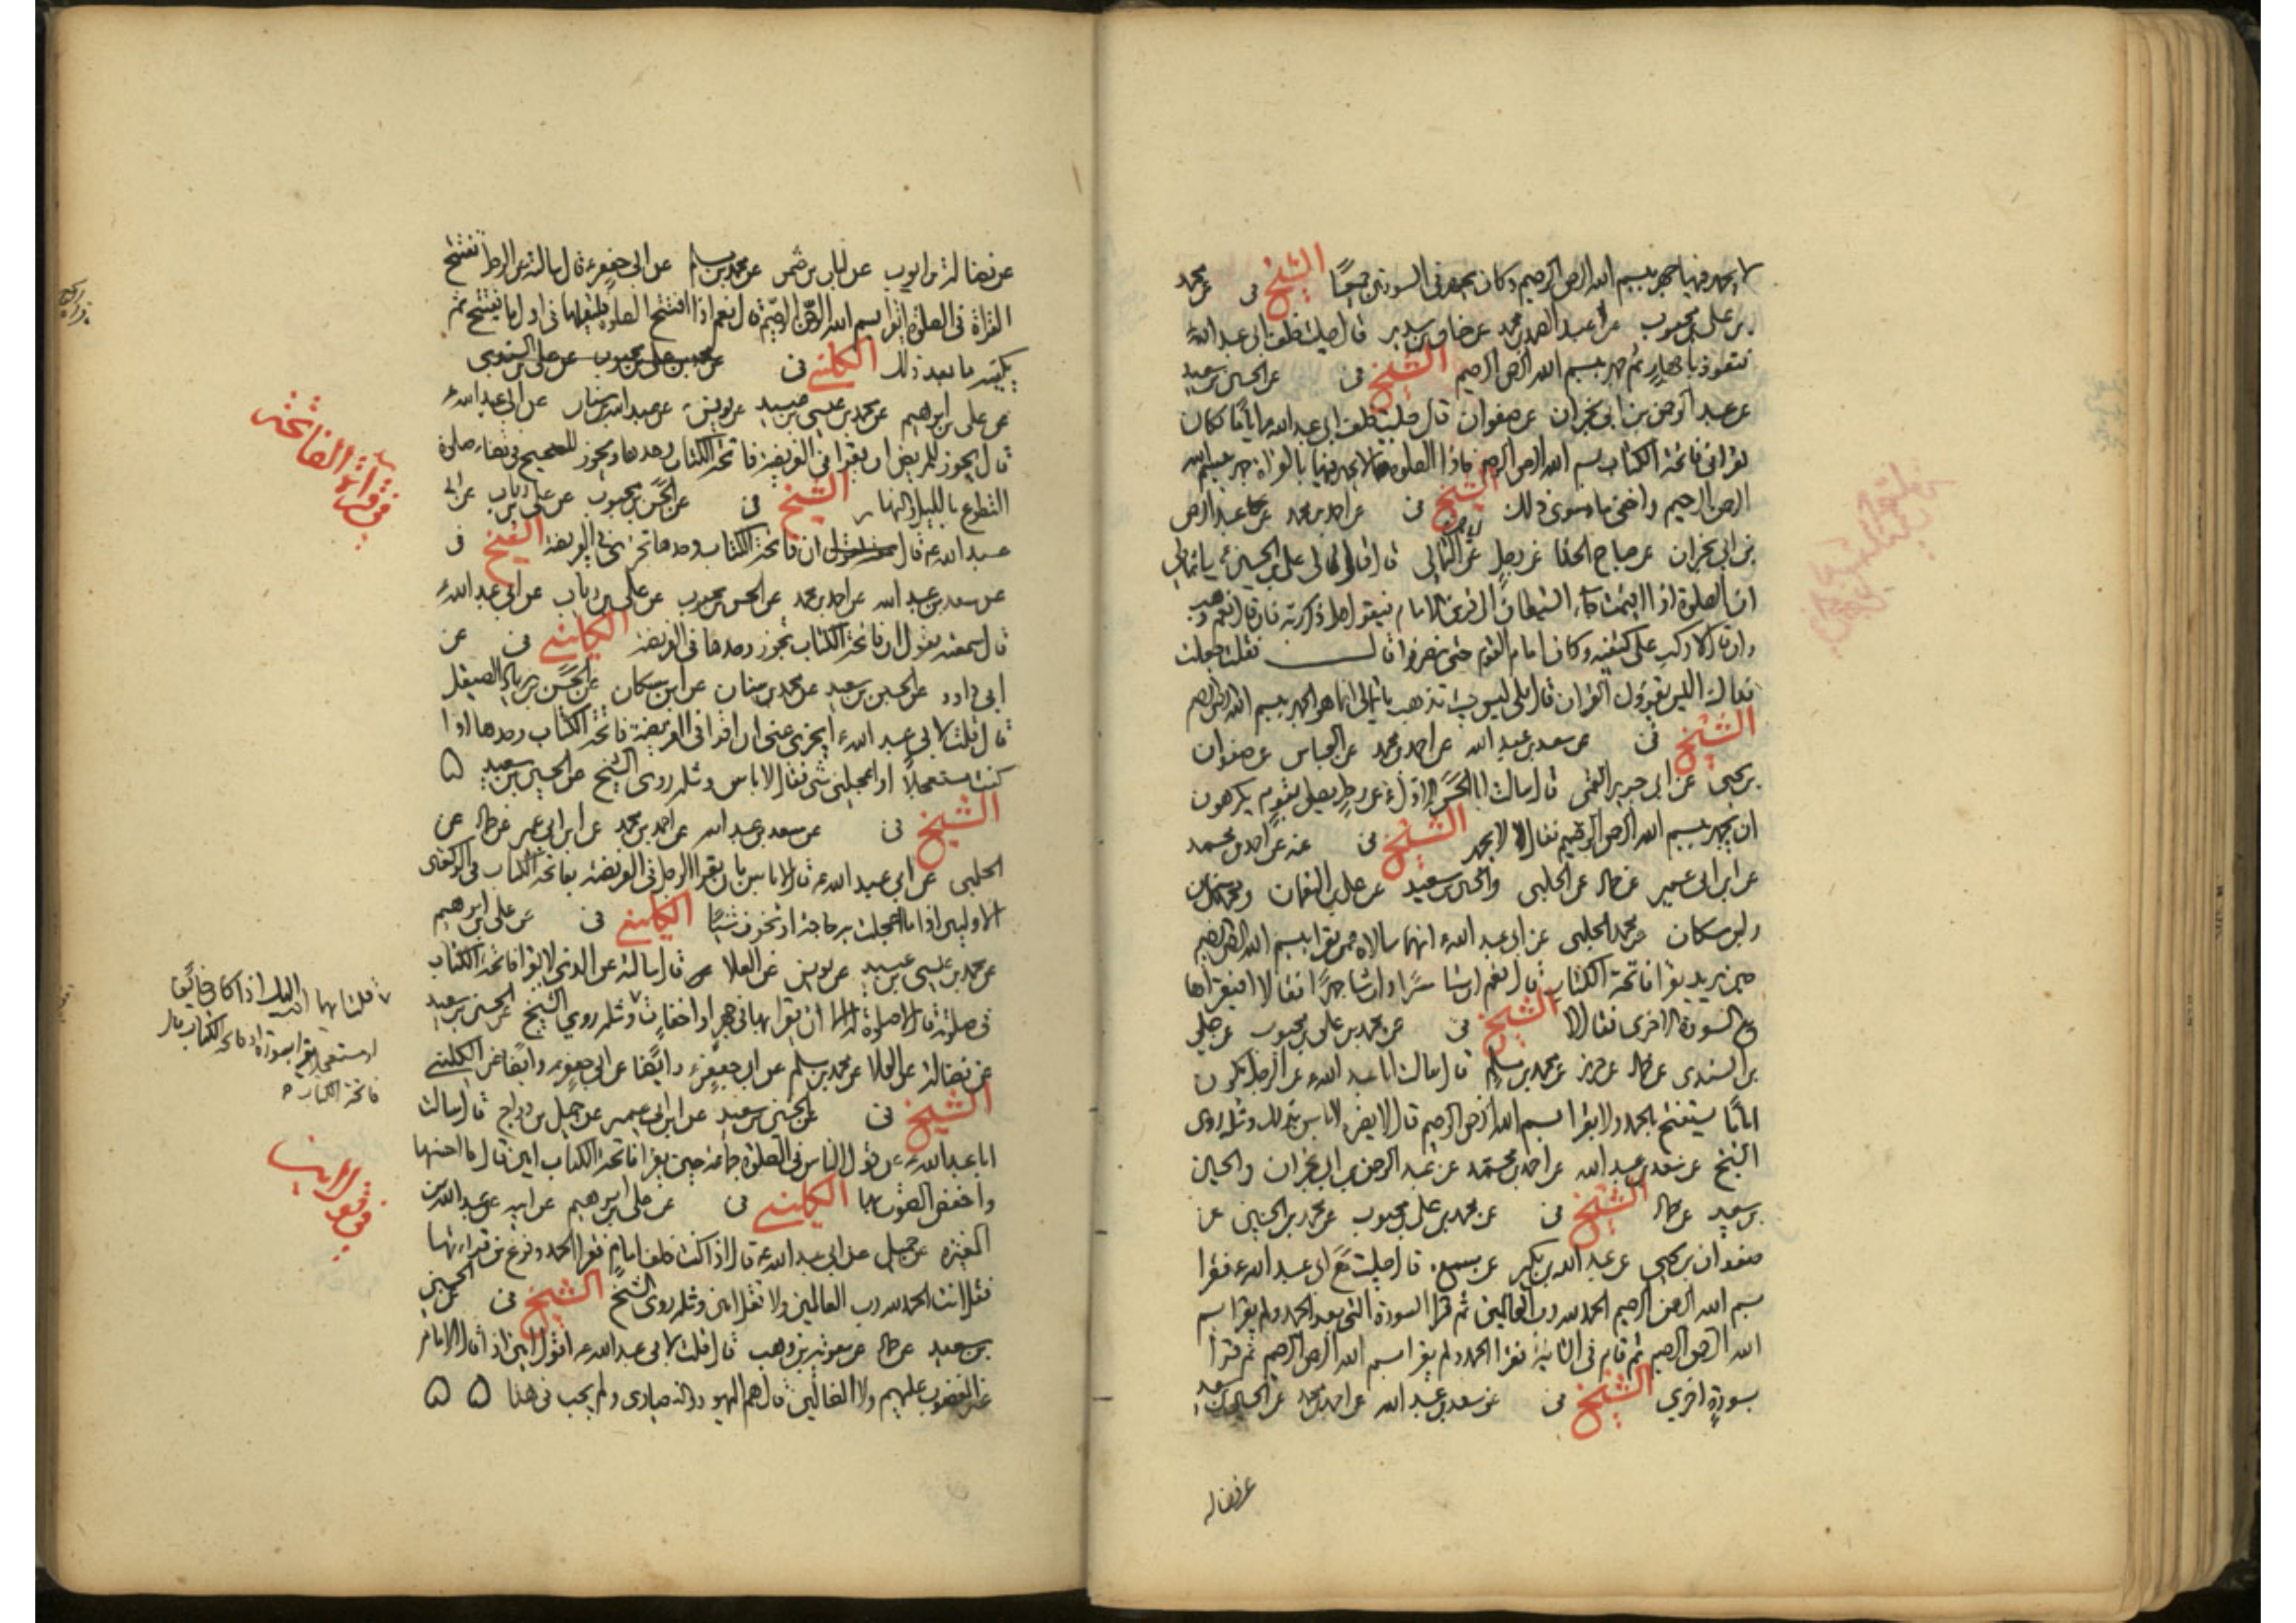 لا يجهر فيها جهر ببسم الله الرحمن الرحيم وكان يجهر في السورتين جميعًا الشيخ في عن محمد
بن علي بن محبوب عن عبد الصمد بن محمد عن حنان بن سدير قال صليت خلف ابي عبد الله ع
فتعوذ باجهار ثم جهر ببسم الله الرحمن الرحيم الشيخ في عن الحسين بن سعيد
عن عبد الرحمن بن ابي نجران عن صفوان قال صليت خلف ابي عبد الله ع اياما فكان
يقرا في فاتحة الكتاب بسم الله الرحمن الرحيم فاذا الصلوة لا يجهر فيها بالقراة جهر ببسم الله
الرحمن الرحيم واخفى ما سوى ذلك الشيخ في عن احمد بن محمد عن عبد الرحمن
بن ابي نجران عن صباح الحذا عن رجل عن الثمالي قال قال لي علي بن الحسين ع يا ثمالي
ان الصلوة اذا اقيمت جاء الشيطان الى قرين الامام فيقول هل ذكر ربه فان قال نعم ذهب
وان قال لا ركب على كتفيه وكان امام القوم حتى ينصرفوا قال فقلت جعلت
فداك اليس يقرؤن القران قال بلى ليس حيث تذهب يا ثمالي انما هو الجهر ببسم الله الرحمن الرحيم
الشيخ في عن سعد بن عبد الله عن احمد بن محمد عن العباس عن صفوان
بن يحيى عن ابي جرير القمي قال سالت ابا الحسن الاول ع عن رجل يصلي بقوم يكرهون
ان يجهر ببسم الله الرحمن الرحيم فقال لا يجهر الشيخ في عنه عن احمد بن محمد
عن ابن ابي عمير عن حماد عن الحلبي والحسين بن سعيد عن علي بن النعمان ومحمد بن سنان
وابن مسكان عن محمد الحلبي عن ابي عبد الله ع انهما سالاه عمن يقرا بسم الله الرحمن الرحيم
حين يريد يقرا فاتحة الكتاب قال نعم ان شا سرًا وان شا جهرًا فقالا افيقراها
مع السورة الاخرى فقال لا الشيخ في عن محمد بن علي بن محبوب عن علي
بن السندي عن حماد عن حريز عن محمد بن مسلم قال سالت ابا عبد الله ع عن الرجل يكون
امامًا يستفتح بالحمد ولا يقرا بسم الله الرحمن الرحيم قال لا يضره لا باس بذلك ومثله روى
الشيخ عن سعد بن عبد الله عن احمد بن محمد عن عبد الرحمن بن ابي نجران والحسين
بن سعيد عن حماد الشيخ في عن محمد بن علي بن محبوب عن محمد بن الحسين عن
صفوان بن يحيى عن عبد الله بن بكير عن مسمع قال صليت مع ابي عبد الله ع فقرا
بسم الله الرحمن الرحيم الحمد لله رب العالمين ثم قرا السورة التي بعد الحمد ولم يقرا بسم
الله الرحمن الرحيم ثم قام في الثانية فقرا الحمد ولم يقرا بسم الله الرحمن الرحيم ثم قرا
بسورة اخرى الشيخ في عن سعد بن عبد الله عن احمد بن محمد عن الحسين بن سعيد
عن فضاله
عن فضالة بن ايوب عن عن محمد بن مسلم عن ابي جعفر ع قال سالته عن الرجل يفتتح
القراة في الصلوة ايقرا بسم الله الرحمن الرحيم قال نعم اذا افتتح الصلوة فليقلها في اول ما يفتتح ثم
يكفيه ما بعد ذلك الكليني في عن محمد بن علي بن محبوب عن علي بن السندي
عن علي بن ابرهيم عن محمد بن عيسى بن عبيد عن يونس عن عبد الله بن سنان عن ابي عبد الله ع
قال يجوز للمريض ان يقرا في الفريضة فاتحة الكتاب وحدها ويجوز للصحيح في قضاء صلوة
التطوع بالليل والنهار الشيخ في عن الحسن بن محبوب عن علي بن رياب عن ابي
عبد الله ع قال ان فاتحة الكتاب وحدها تجزي في الفريضة الشيخ في
عن سعد بن عبد الله عن احمد بن محمد عن الحسن بن محبوب عن علي بن رياب عن ابي عبد الله ع
قال سمعته يقول ان فاتحة الكتاب تجوز وحدها في الفريضة الكليني في عن
ابي داود عن الحسين بن سعيد عن محمد بن سنان عن ابن مسكان عن الحسن بن زياد الصيقل
قال قلت لابي عبد الله ع ايجزي عني ان اقرا في الفريضة فاتحة الكتاب وحدها اذا
كنت مستعجلًا او اعجلني شي فقال لا باس ومثله روى الشيخ عن الحسين بن سعيد ه
الشيخ في عن سعد بن عبد الله عن احمد بن محمد عن ابن ابي عمير عن حماد عن
الحلبي عن ابي عبد الله ع قال لا باس بان يقرا الرجل في الفريضة بفاتحة الكتاب في الركعتين
الاوليين اذا ما اعجلت به حاجة او تخوف شيئًا الكليني في عن علي بن ابرهيم
عن محمد بن عيسى بن عبيد عن يونس عن العلا عن قال سالته عن الذي لا يقرا فاتحة الكتاب
في صلوته قال لا صلوة له الا ان يقرا بها في جهر او اخفات ومثله روى الشيخ عن الحسين بن سعيد
عن فضالة عن العلا عن محمد بن مسلم عن ابي جعفر ع وايضًا عن ابي جعفر ع وايضًا عن الكليني
الشيخ في عن الحسين بن سعيد عن ابن ابي عمير عن جميل بن دراج قال سالت
ابا عبد الله ع عن قول الناس في الصلوة جماعة حين يقرا فاتحة الكتاب امين قال ما احسنها
واخفض الصوت بها الكليني في عن علي بن ابرهيم عن ابيه عن عبد الله بن
المغيرة عن جميل عن ابي عبد الله ع قال اذا كنت خلف امام فقرا الحمد وفرغ من قراءتها
فقل انت الحمد لله رب العالمين ولا تقل امين ومثله روى الشيخ الشيخ في عن الحسين
بن سعيد عن حماد عن معوية بن وهب قال قلت لابي عبد الله ع اقول امين اذا قال الامام
غير المغضوب عليهم ولا الضالين قال هم اليهود والنصارى ولم يجب في هذا ه ه
في قراة الفاتحة
قلنا ايهما احب اليك اذا كان خائفا
او مستعجلا يقرا بسورة او فاتحة الكتاب قال
فاتحة الكتاب